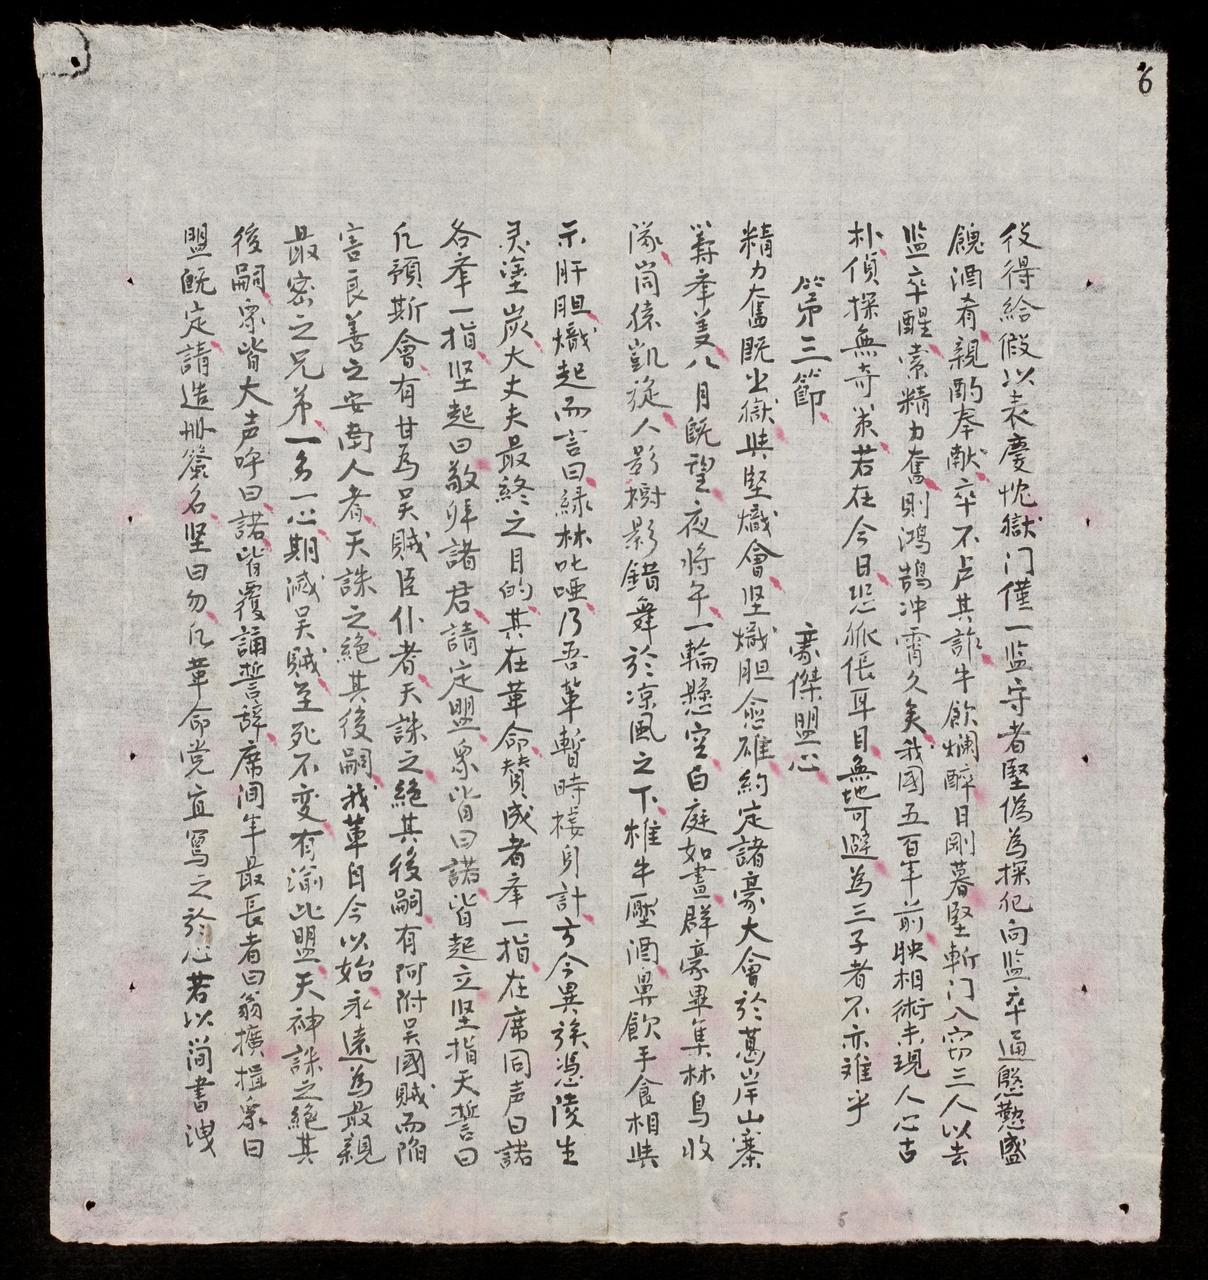 6
役得給假以表慶忱獄门僅一监守者堅偽為探犯向监卒通慇懃盛
餽酒肴親酌奉献卒不卢其詐牛飲爛醉日剛暮堅斬门入窃三人以去
监卒醒索精力奮則鴻鵠冲霄久矣我國五百年前映相術未現人心古
朴偵探無奇策若在今日恐脈張耳目無地可避為三子者不亦难乎
第三節 豪傑盟心
精力奮既出獄與堅熾會坚熾胆愈雄約定諸豪大會於葛岸山寨
筹举義八月既望夜將午一輪懸空白庭如晝群豪畢集林鳥收
隊崗猿凱旋人影樹影錯舞於凉風之下椎牛壓酒鼻飲手食相與
示肝胆熾起而言曰緑林叱唖乃吾輩暫時棲身計方今異族憑陵生
灵塗炭大丈夫最終之目的其在革命賛成者举一指在席同声曰諾
各举一指坚起曰敬拜諸君請定盟眾皆曰諾皆起立坚指天誓曰
凡預斯會有甘為吳賊臣仆者天誅之絕其後嗣有阿附吳國賊而陷
害良善之安南人者天誅之絕其後嗣我輩自今以始永遠為最親
最密之兄弟一多一心期滅吳賊至死不变有渝此盟天神誅之絕其
後嗣眾皆大声呼曰諾皆覆誦誓辞席间年最長者曰翁擴揖眾曰
盟既定請造册簽名坚曰勿凡革命党宜寫之於心若以简書洩
6